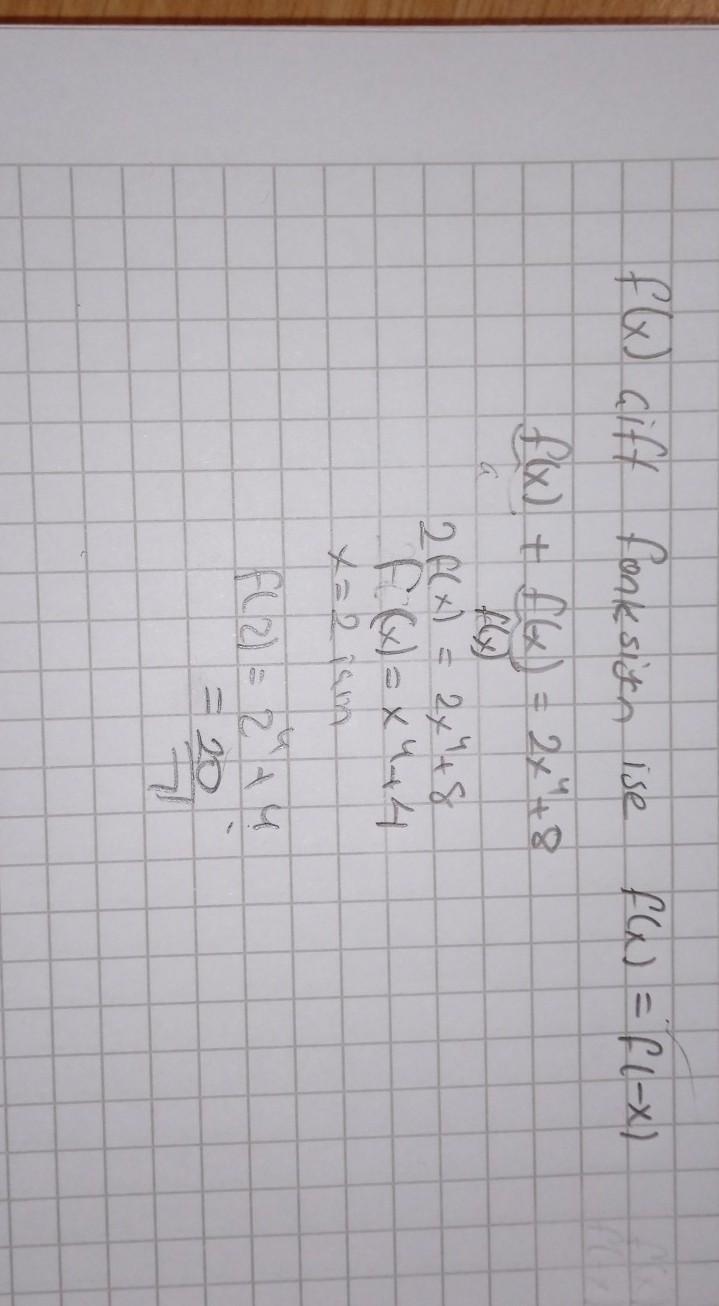 f(x) çift fonksiyon ise f(x) = f(-x)
f(x) + f(x) = 2x⁴+8
f(x)
2f(x) = 2x⁴+8
f(x) = x⁴+4
x=2 için
f(2) = 2⁴+4
= 20